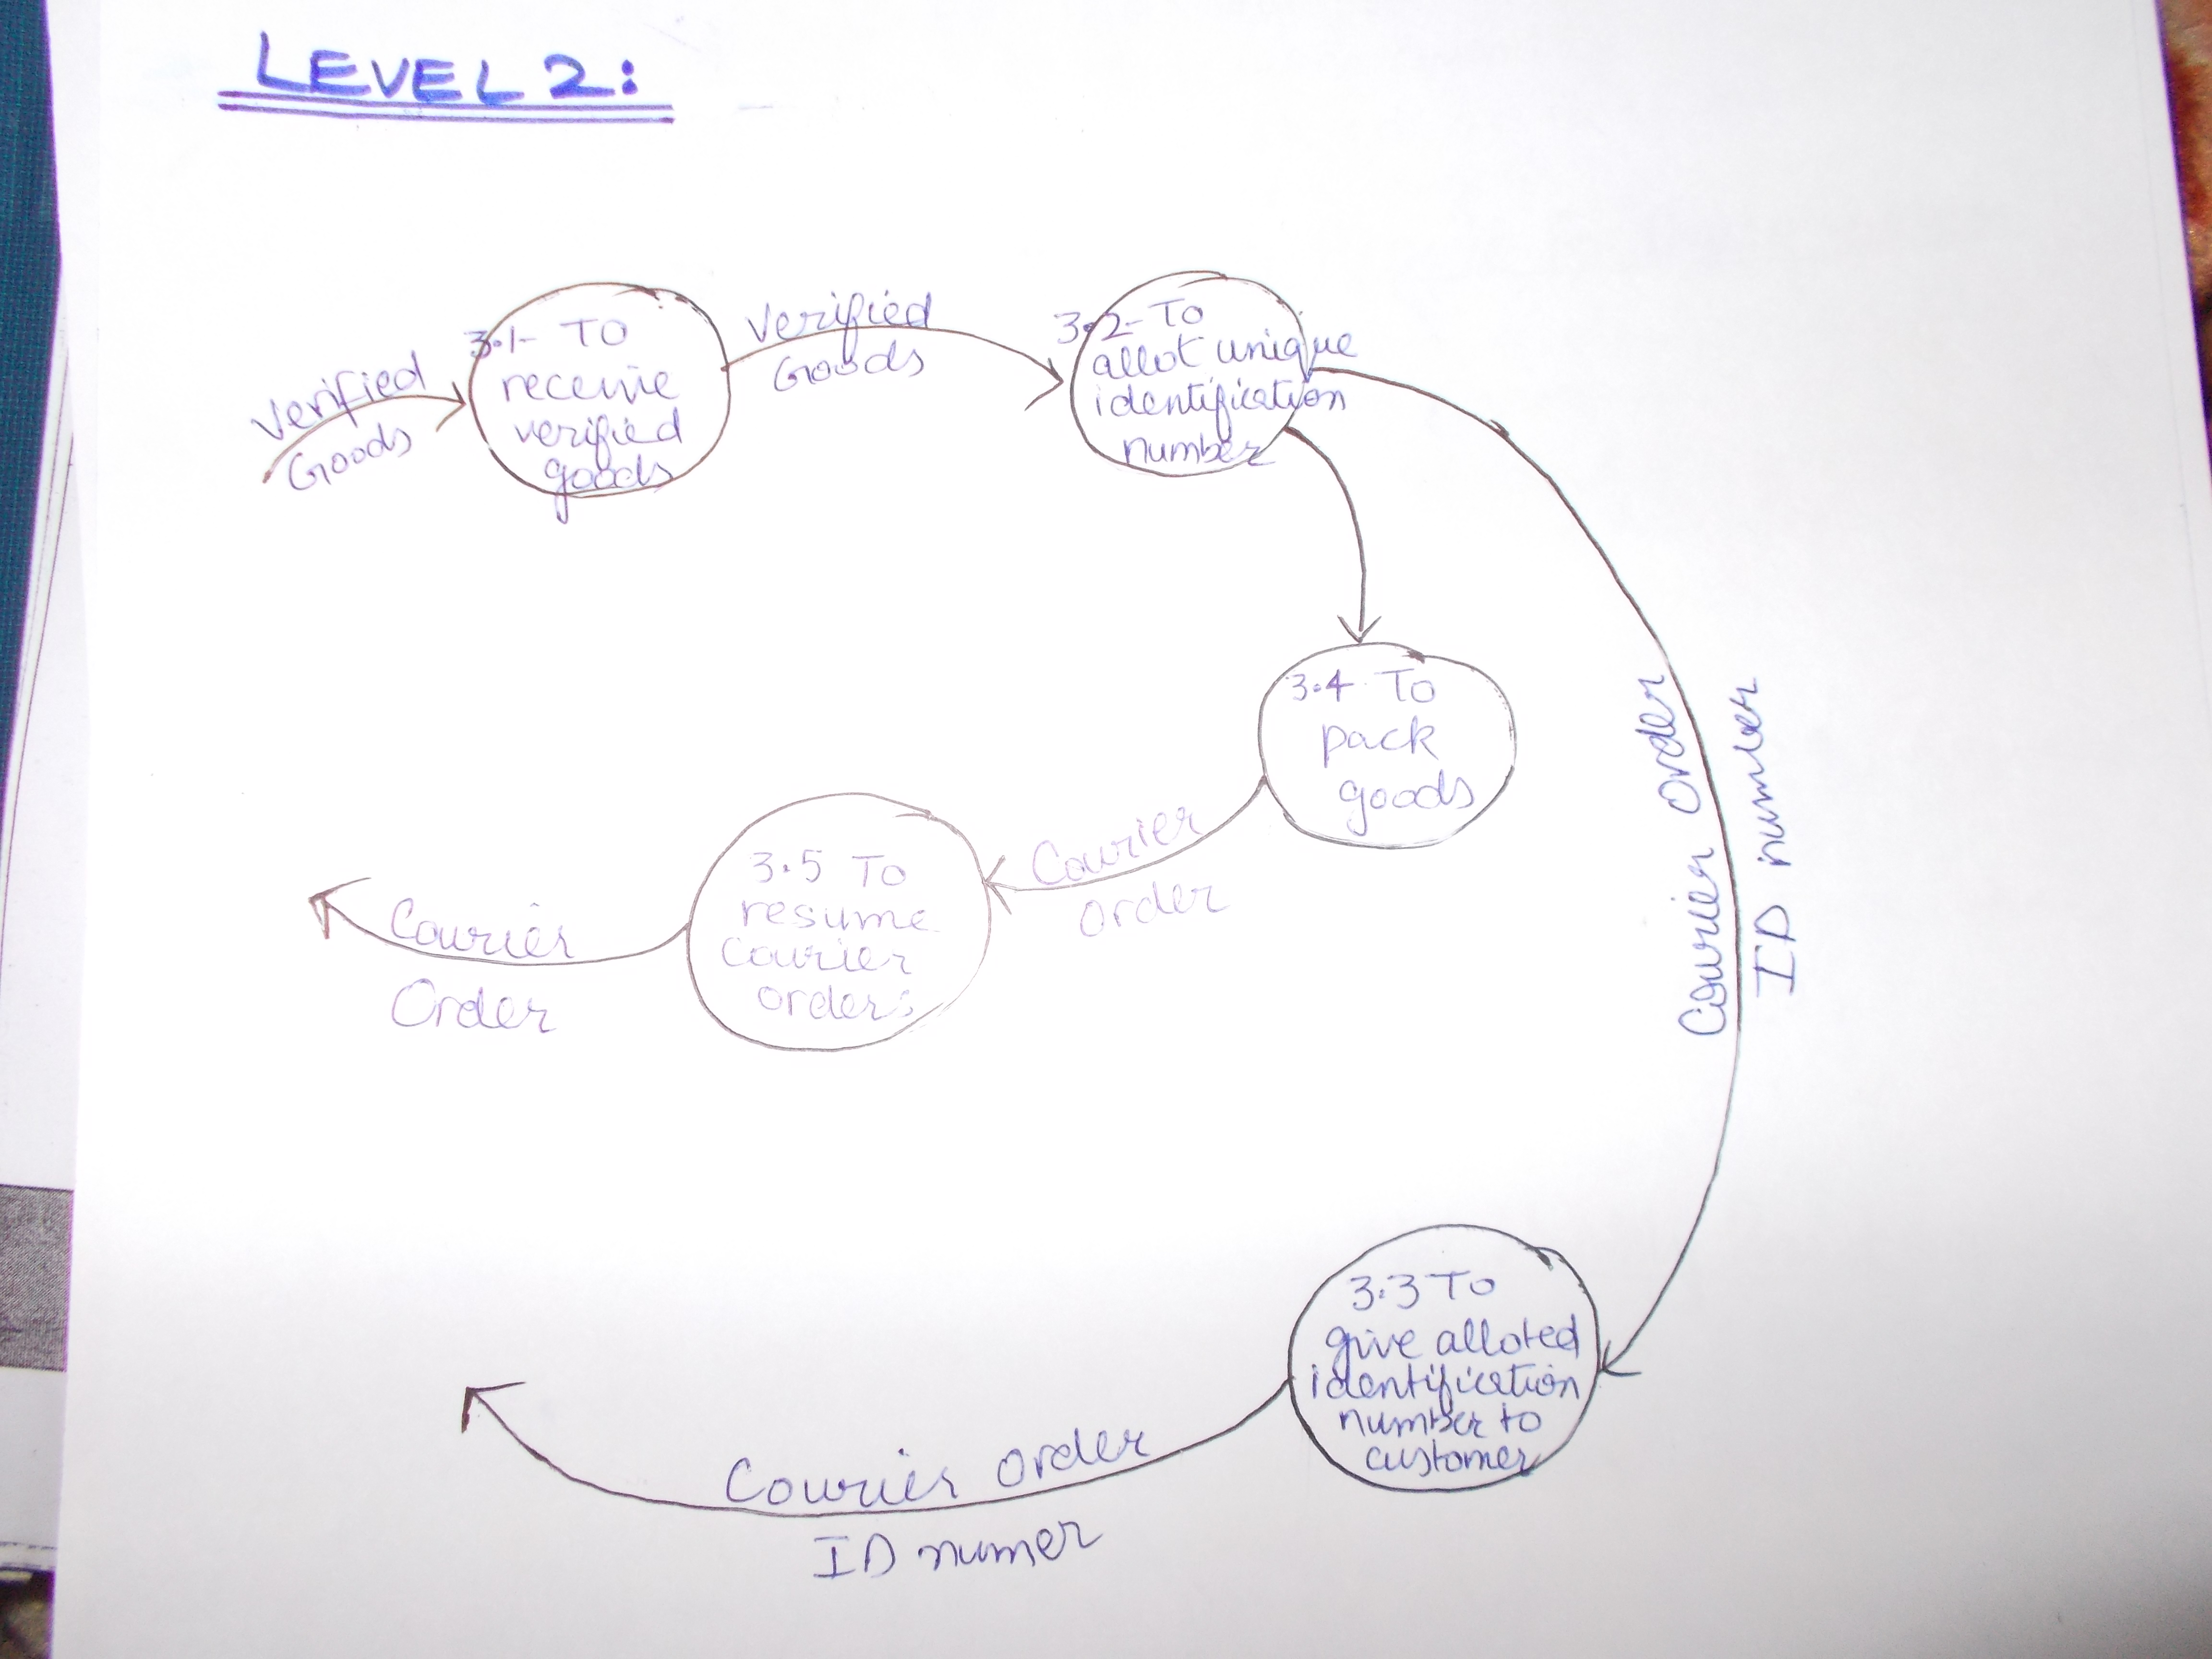 LEVEL 2:
Verified
Goods
3.1- To
receive
verified
goods
Verified
Goods
3.2- To
allot unique
identification
number
3.4 To
pack
goods
Courier
order
3.5 To
resume
Courier
orders
Courier
Order
Courier Order
ID number
3.3 To
give alloted
identification
number to
customer
Courier order
ID numer